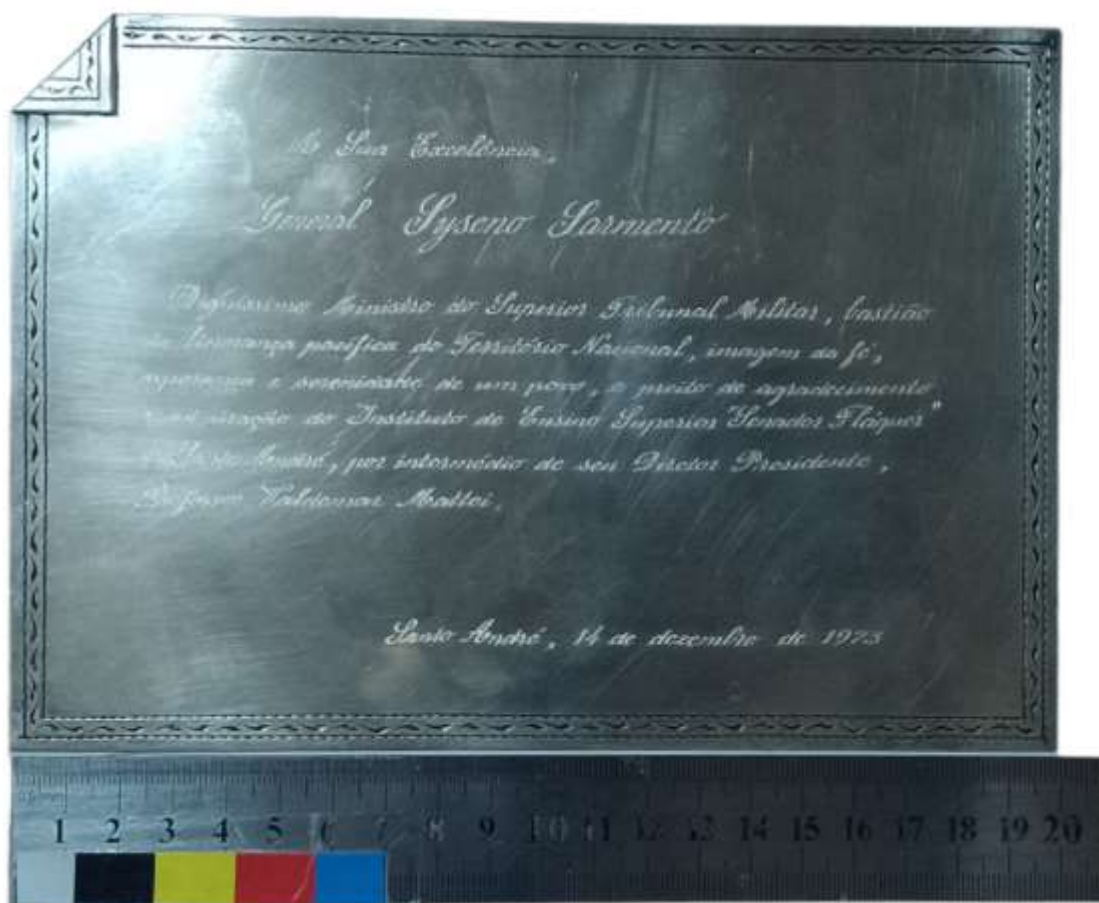 A Sua Excelência,
General Syseno Sarmento
Digníssimo Ministro do Superior Tribunal Militar, bastião
da liderança pacífica do Território Nacional, imagem da fé,
esperança e serenidade de um povo, o preito de agradecimento
e admiração do Instituto de Ensino Superior "Senador Fláquer"
de Santo André, por intermédio de seu Diretor Presidente,
Professor Valdemar Mattei.
Santo André, 14 de dezembro de 1973
1 2 3 4 5 6 7 8 9 10 11 12 13 14 15 16 17 18 19 20